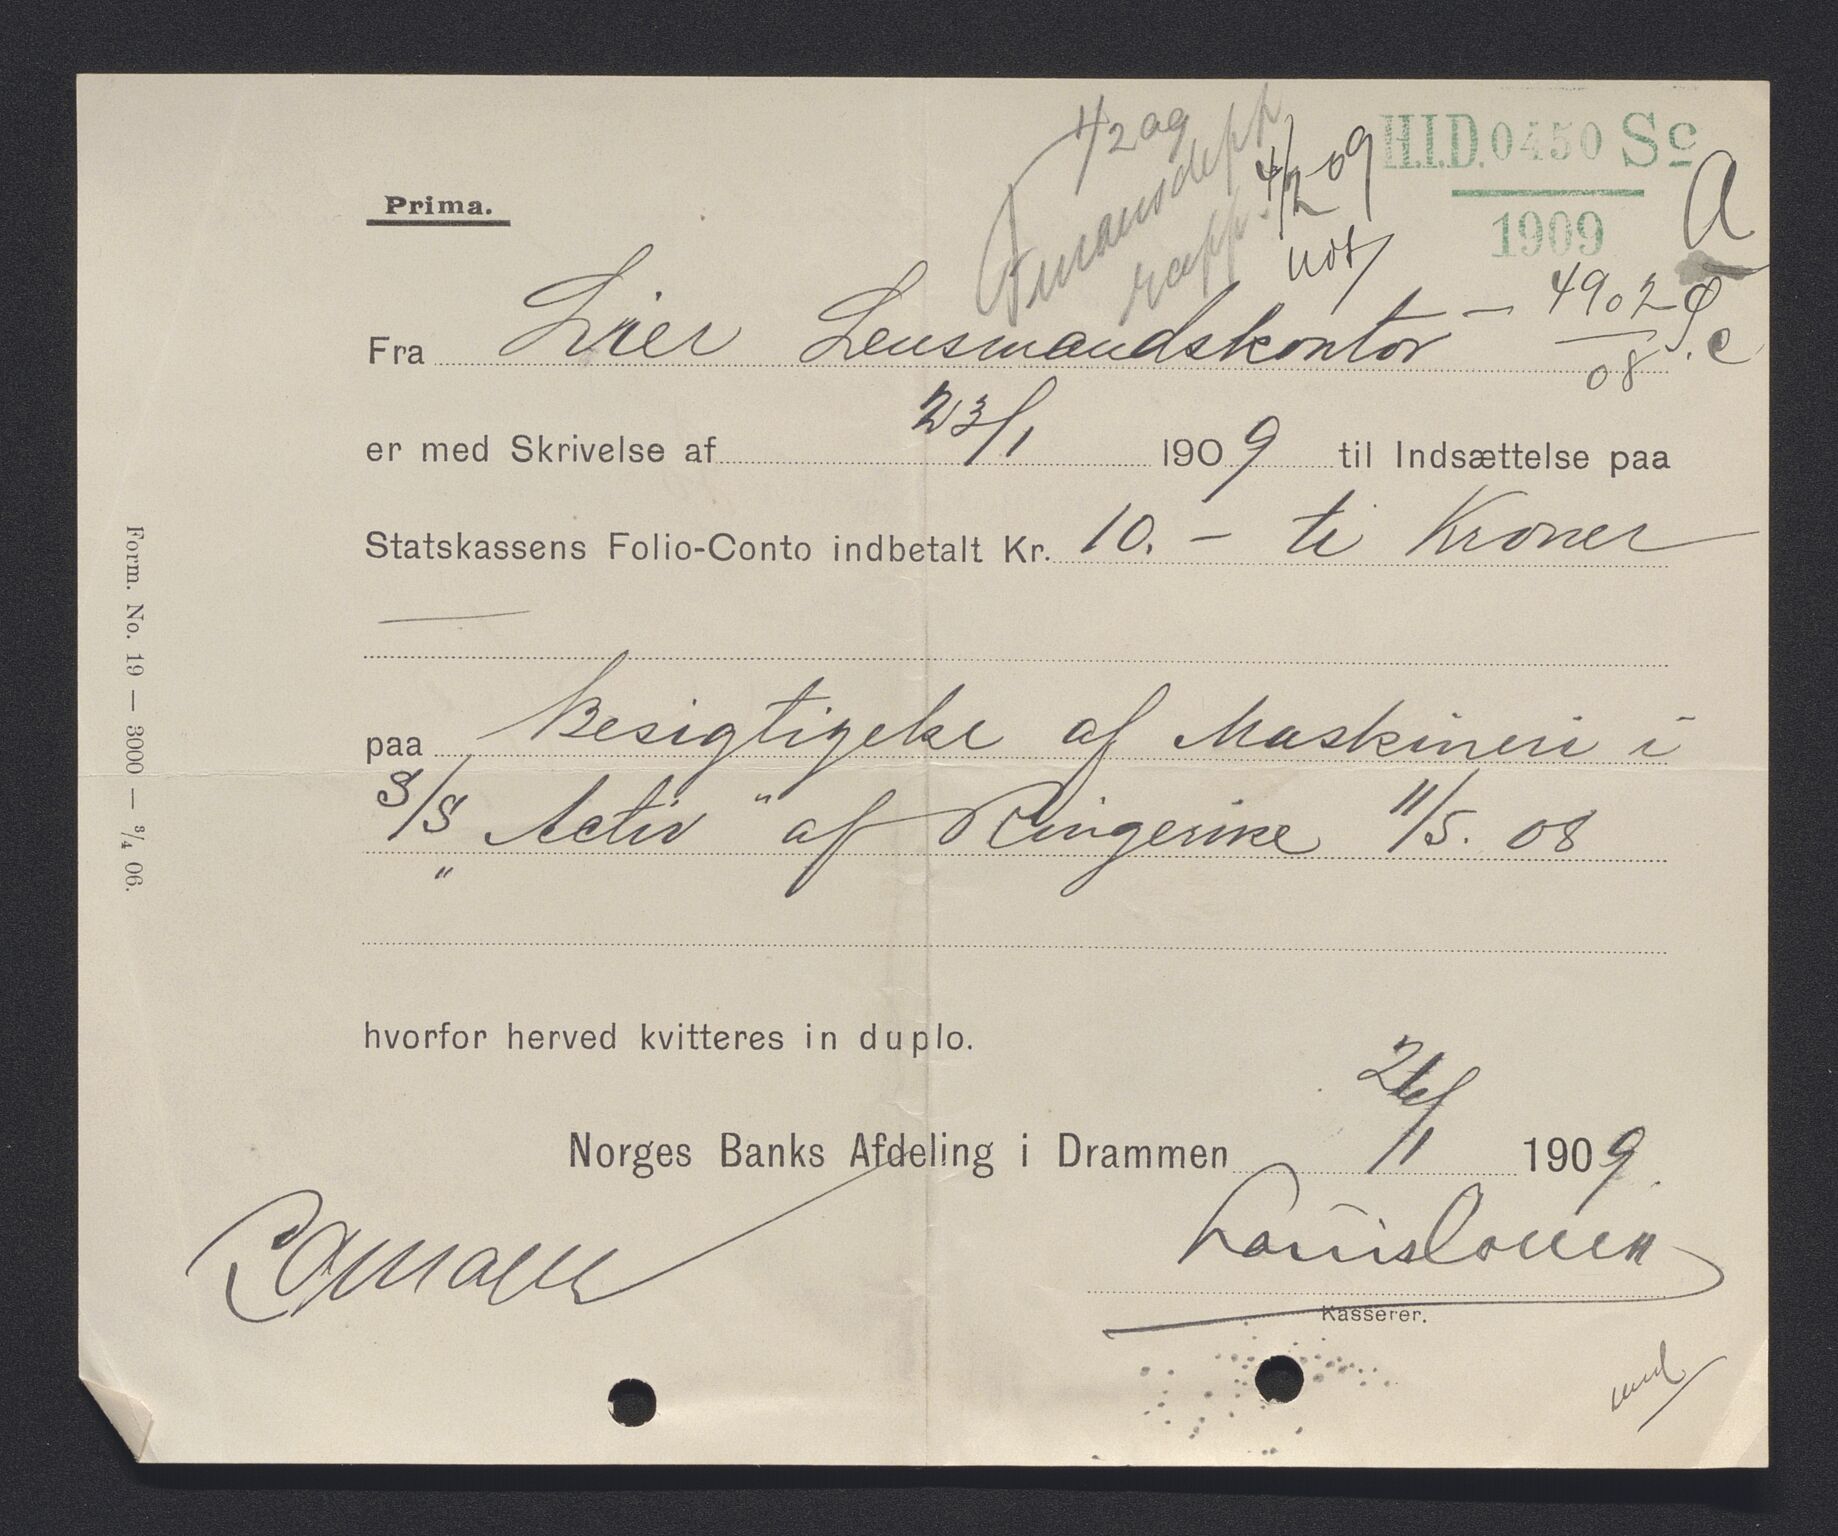 4/2 09
Finansdepp
rapp.
4/2 09
H.I.D. 0450 Sc
1909
A
Prima.
Fra Lier Lensmandskontor – 4902 S.c
08
er med Skrivelse af 23/1 1909 til Indsættelse paa
Statskassens Folio-Conto indbetalt Kr. 10. – ti Kroner
paa Besigtigelse af Maskineri i
S/S „Activ" af Ringerike 11/5. 08
hvorfor herved kvitteres in duplo.
Norges Banks Afdeling i Drammen 26/1 1909.
Kasserer.
Form. No. 19 — 3000 — 3/4 06.